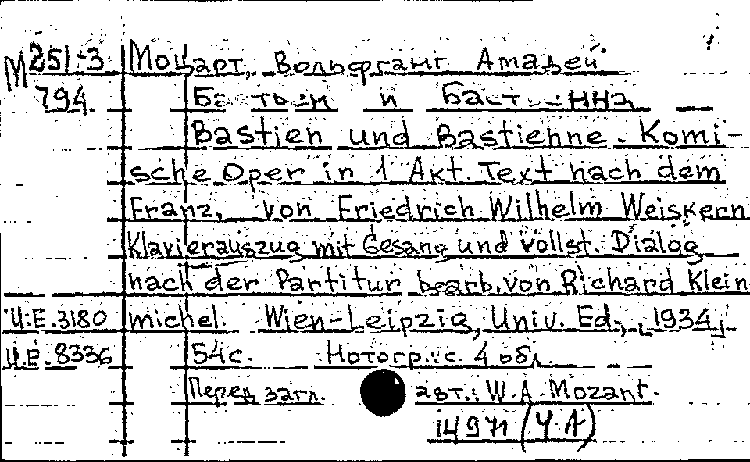 М 251-3 Моцарт, Вольфганг Амадей
794 Бастьен и Бастьенна
Bastien und Bastienne. Komi-
sche Oper in 1 Akt. Text nach dem
Franz. von Friedrich Wilhelm Weiskern
Klavierauszug mit Gesang und vollst. Dialog
nach der Partitur bearb. von Richard Klein
U.E. 3180 michel. Wien-Leipzig, Univ. Ed., [1934]
U.E. 8336 54 с. Нотогр. с. 4 обл
Перед загл. авт.: W. A. Mozart.
14971 (Ч.А)